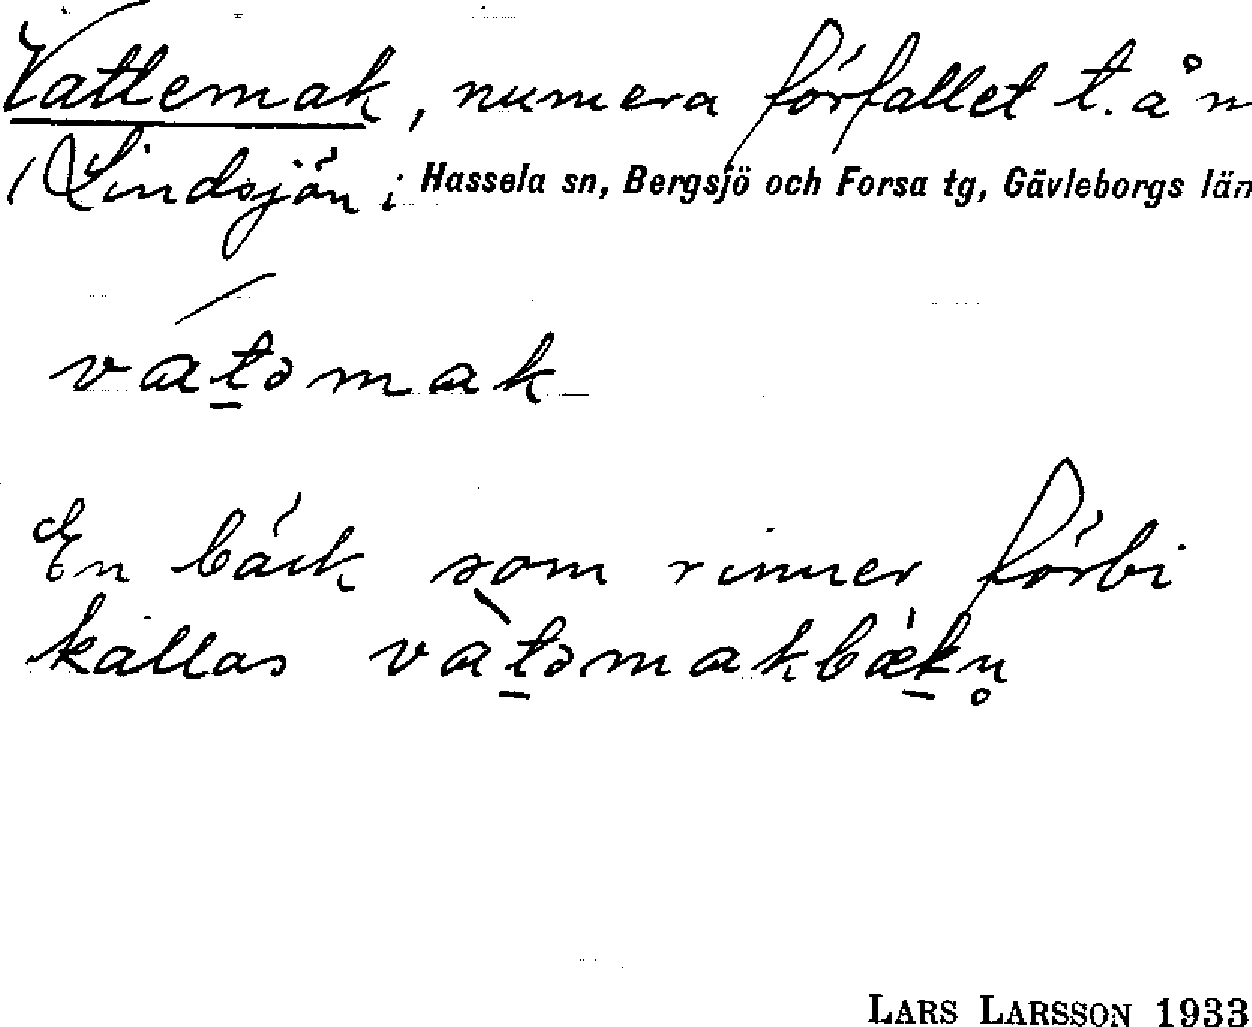 Vattemak, numera förfallet t. å n
(Lindsjön i Hassela sn, Bergsjö och Forsa tg, Gävleborgs län
vát̲əmak
En bäck som rinner förbi
kallas vàt̲əmakbæk̲n̥
LARS LARSSON 1933